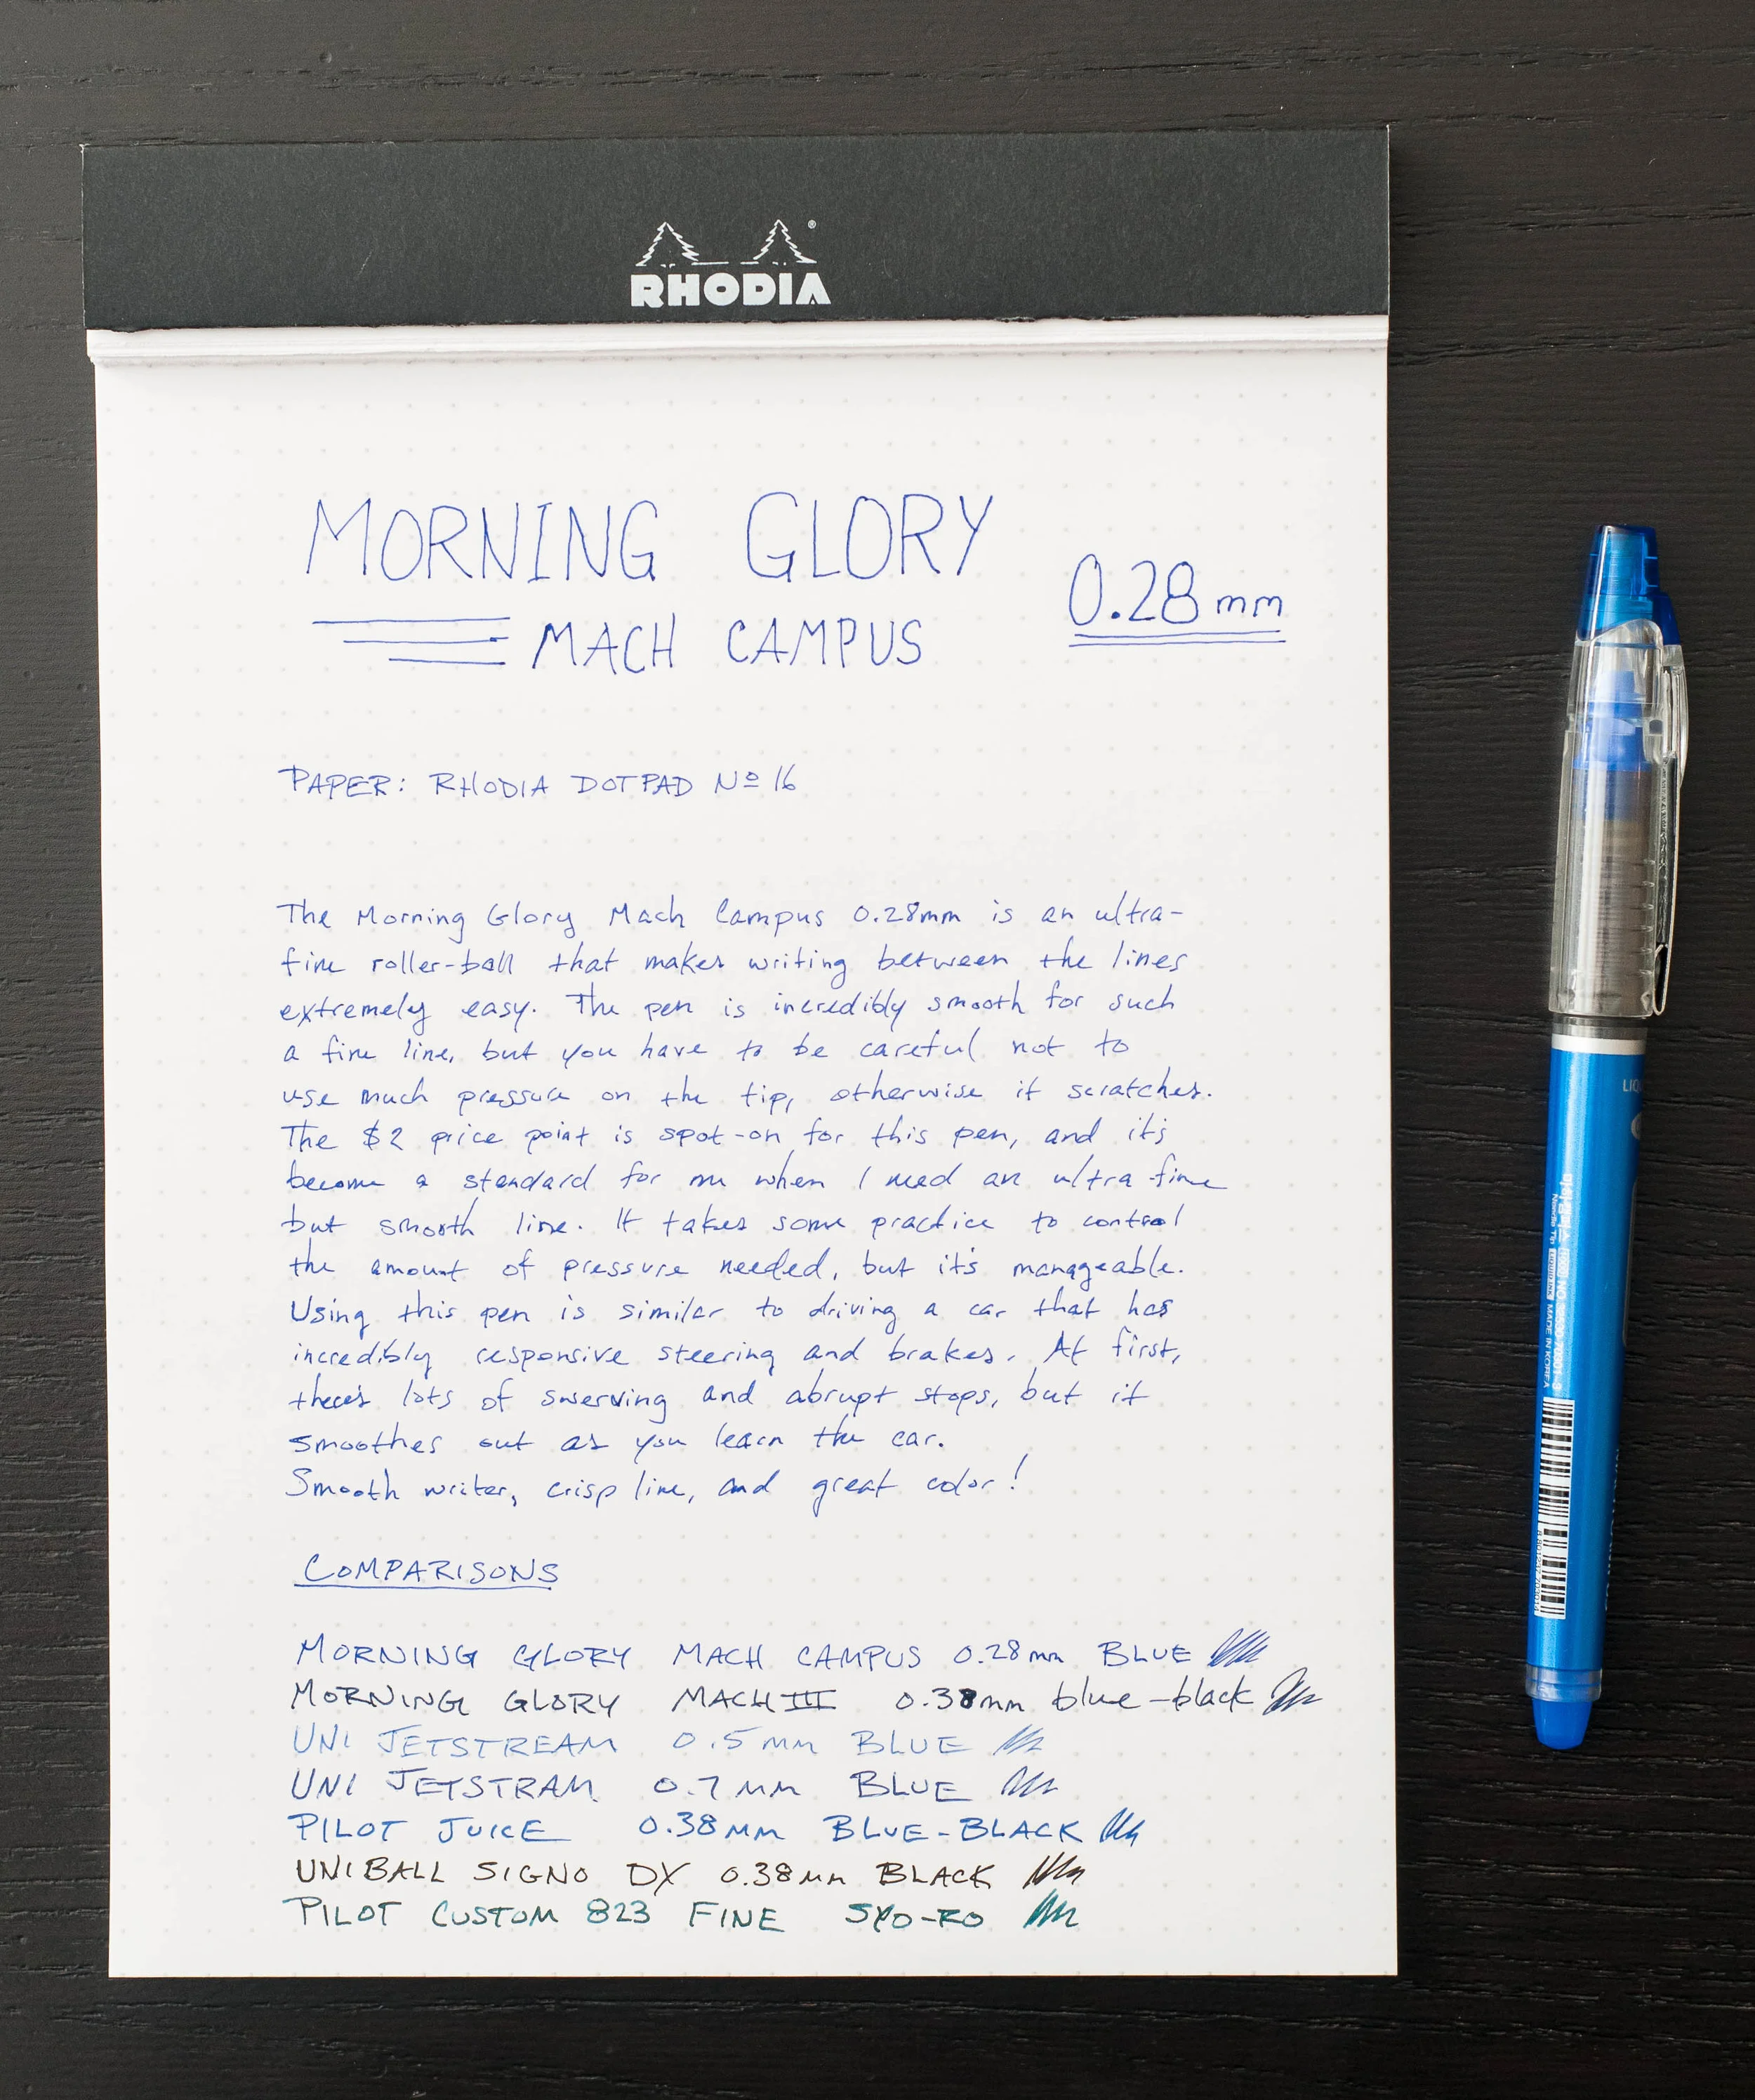 RHODIA
MORNING GLORY
0.28mm
MACH CAMPUS
PAPER: RHODIA DOTPAD Nº 16
The Morning Glory Mach Campus 0.28mm is an ultra-
fine roller-ball that makes writing between the lines
extremely easy. The pen is incredibly smooth for such
a fine line, but you have to be careful not to
use much pressure on the tip, otherwise it scratches.
The $2 price point is spot-on for this pen, and it's
become a standard for me when I need an ultra fine
but smooth line. It takes some practice to control
the amount of pressure needed, but it's manageable.
Using this pen is similar to driving a car that has
incredibly responsive steering and brakes. At first,
there's lots of swerving and abrupt stops, but it
smoothes out as you learn the car.
Smooth writer, crisp line, and great color!
COMPARISONS
MORNING GLORY MACH CAMPUS 0.28mm BLUE
MORNING GLORY MACH III 0.38mm blue-black
UNI JETSTREAM 0.5mm BLUE
UNI JETSTRAM 0.7mm BLUE
PILOT JUICE 0.38mm BLUE-BLACK
UNIBALL SIGNO DX 0.38mm BLACK
PILOT CUSTOM 823 FINE SYO-RO
MADE IN KOREA